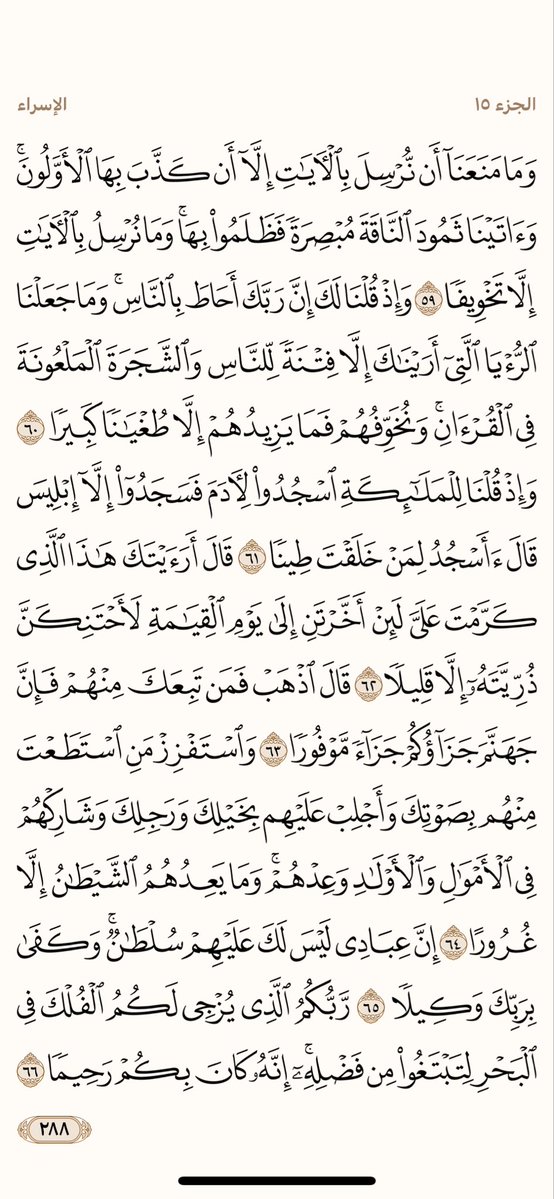 الجزء ١٥
الإسراء
وَمَا مَنَعَنَآ أَن نُّرۡسِلَ بِٱلۡأٓيَٰتِ إِلَّآ أَن كَذَّبَ بِهَا ٱلۡأَوَّلُونَۚ
وَءَاتَيۡنَا ثَمُودَ ٱلنَّاقَةَ مُبۡصِرَةٗ فَظَلَمُواْ بِهَاۚ وَمَا نُرۡسِلُ بِٱلۡأٓيَٰتِ
إِلَّا تَخۡوِيفٗا ٥٩ وَإِذۡ قُلۡنَا لَكَ إِنَّ رَبَّكَ أَحَاطَ بِٱلنَّاسِۚ وَمَا جَعَلۡنَا
ٱلرُّءۡيَا ٱلَّتِيٓ أَرَيۡنَٰكَ إِلَّا فِتۡنَةٗ لِّلنَّاسِ وَٱلشَّجَرَةَ ٱلۡمَلۡعُونَةَ
فِي ٱلۡقُرۡءَانِۚ وَنُخَوِّفُهُمۡ فَمَا يَزِيدُهُمۡ إِلَّا طُغۡيَٰنٗا كَبِيرٗا ٦٠
وَإِذۡ قُلۡنَا لِلۡمَلَٰٓئِكَةِ ٱسۡجُدُواْ لِأٓدَمَ فَسَجَدُوٓاْ إِلَّآ إِبۡلِيسَ
قَالَ ءَأَسۡجُدُ لِمَنۡ خَلَقۡتَ طِينٗا ٦١ قَالَ أَرَءَيۡتَكَ هَٰذَا ٱلَّذِي
كَرَّمۡتَ عَلَيَّ لَئِنۡ أَخَّرۡتَنِ إِلَىٰ يَوۡمِ ٱلۡقِيَٰمَةِ لَأَحۡتَنِكَنَّ
ذُرِّيَّتَهُۥٓ إِلَّا قَلِيلٗا ٦٢ قَالَ ٱذۡهَبۡ فَمَن تَبِعَكَ مِنۡهُمۡ فَإِنَّ
جَهَنَّمَ جَزَآؤُكُمۡ جَزَآءٗ مَّوۡفُورٗا ٦٣ وَٱسۡتَفۡزِزۡ مَنِ ٱسۡتَطَعۡتَ
مِنۡهُم بِصَوۡتِكَ وَأَجۡلِبۡ عَلَيۡهِم بِخَيۡلِكَ وَرَجِلِكَ وَشَارِكۡهُمۡ
فِي ٱلۡأَمۡوَٰلِ وَٱلۡأَوۡلَٰدِ وَعِدۡهُمۡۚ وَمَا يَعِدُهُمُ ٱلشَّيۡطَٰنُ إِلَّا
غُرُورًا ٦٤ إِنَّ عِبَادِي لَيۡسَ لَكَ عَلَيۡهِمۡ سُلۡطَٰنٞۚ وَكَفَىٰ
بِرَبِّكَ وَكِيلٗا ٦٥ رَّبُّكُمُ ٱلَّذِي يُزۡجِي لَكُمُ ٱلۡفُلۡكَ فِي
ٱلۡبَحۡرِ لِتَبۡتَغُواْ مِن فَضۡلِهِۦٓۚ إِنَّهُۥ كَانَ بِكُمۡ رَحِيمٗا ٦٦
٢٨٨